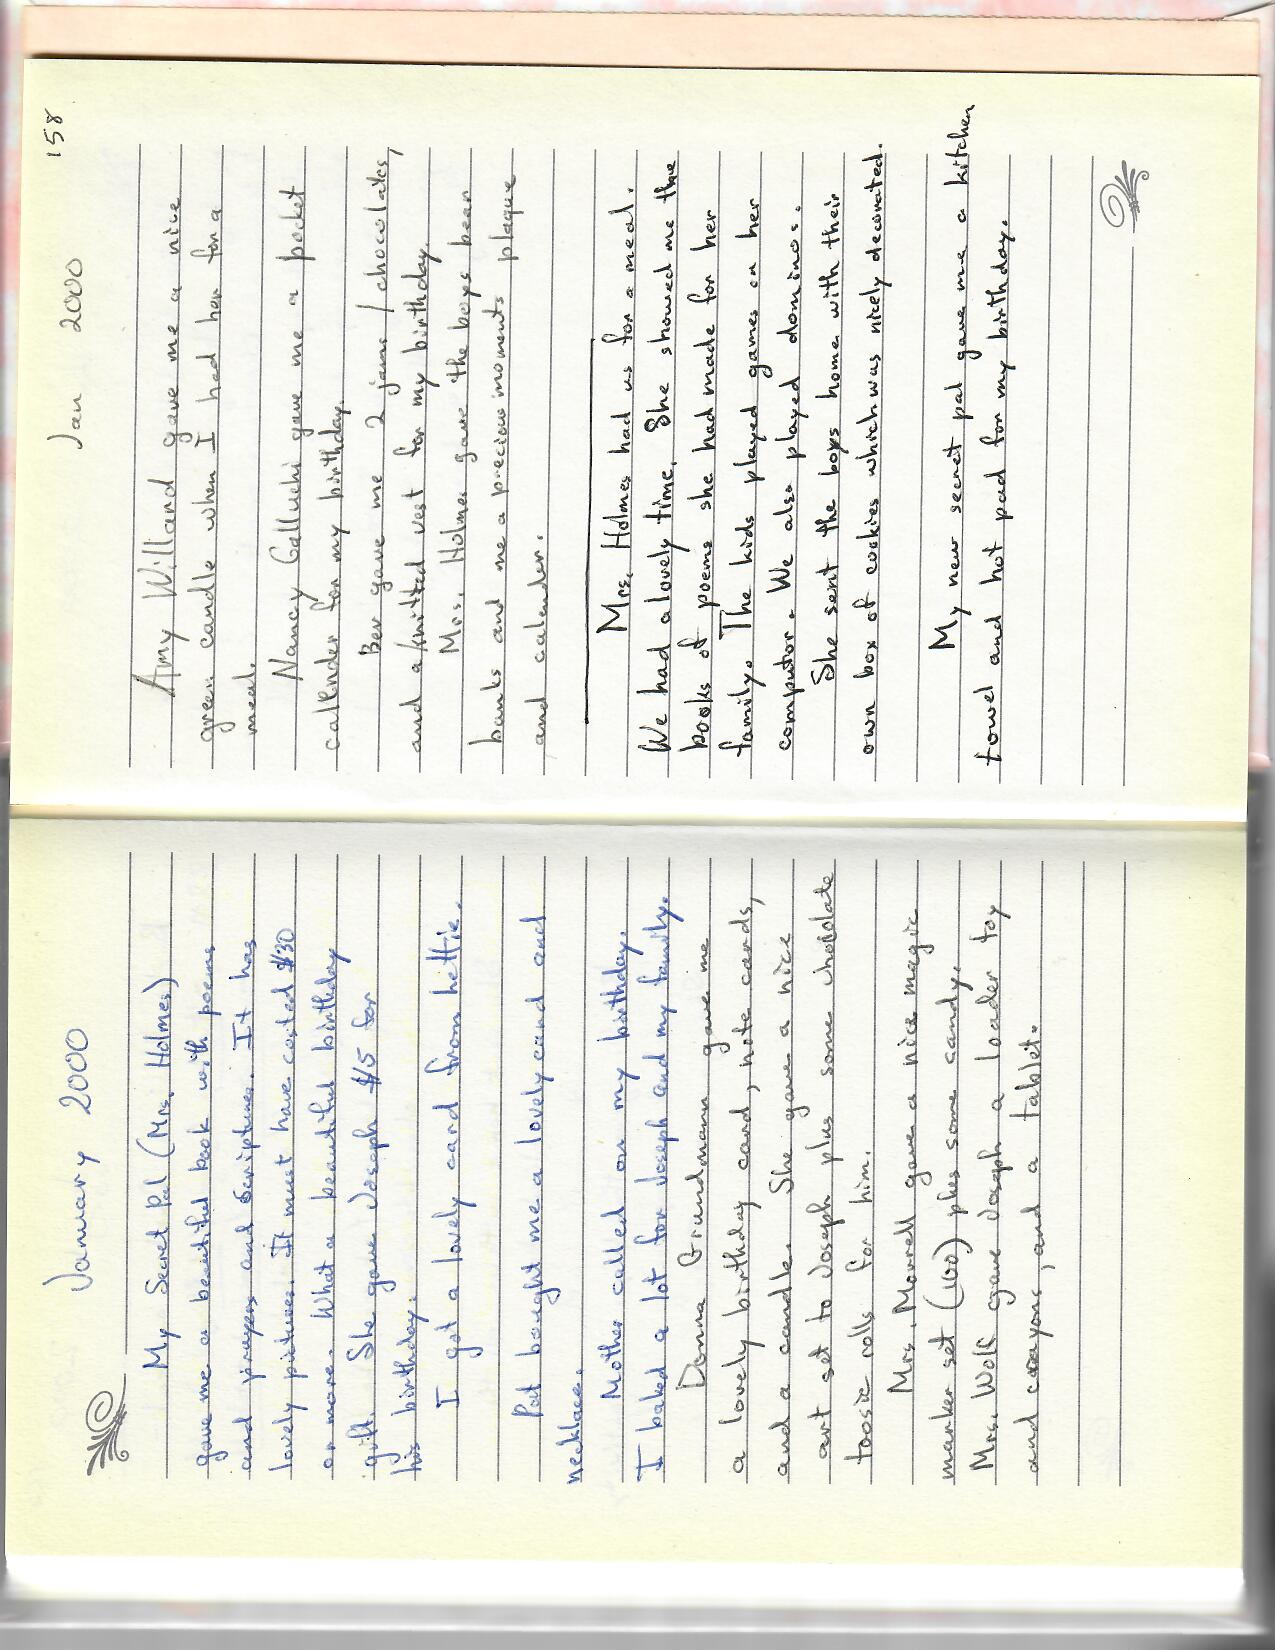 January 2000
My Secret Pal (Mrs. Holmes)
gave me a beautiful book with poems
and prayers and scriptures. It has
lovely pictures. It must have costed $30
or more. What a beautiful birthday
gift. She gave Joseph $15 for
his birthday.
I got a lovely card from hettie.
Pat bought me a lovely card and
necklace.
Mother called on my birthday.
I baked a lot for Joseph and my family.
Donna Grundmann gave me
a lovely birthday card, note cards,
and a candle. She gave a nice
art set to Joseph plus some chocolate
toosie rolls for him.
Mrs. Morrell gave a nice magic
marker set (100) plus some candy.
Mrs. Wolf gave Joseph a loader toy
and crayons, and a tablet.
Jan 2000
158
Amy Willand gave me a nice
green candle when I had her for a
meal.
Nancy Galluchi gave me a pocket
callender for my birthday.
Bev gave me 2 jams / chocolates,
and a knitted vest for my birthday
Mrs. Holmes gave the boys bean
banks and me a precious moments plaque
and calender.
Mrs. Holmes had us for a meal.
We had a lovely time. She showed me the
books of poems she had made for her
family. The kids played games on her
computor. We also played dominos.
She sent the boys home with their
own box of cookies which was nicely decorated.
My new secret pal gave me a kitchen
towel and hot pad for my birthday.